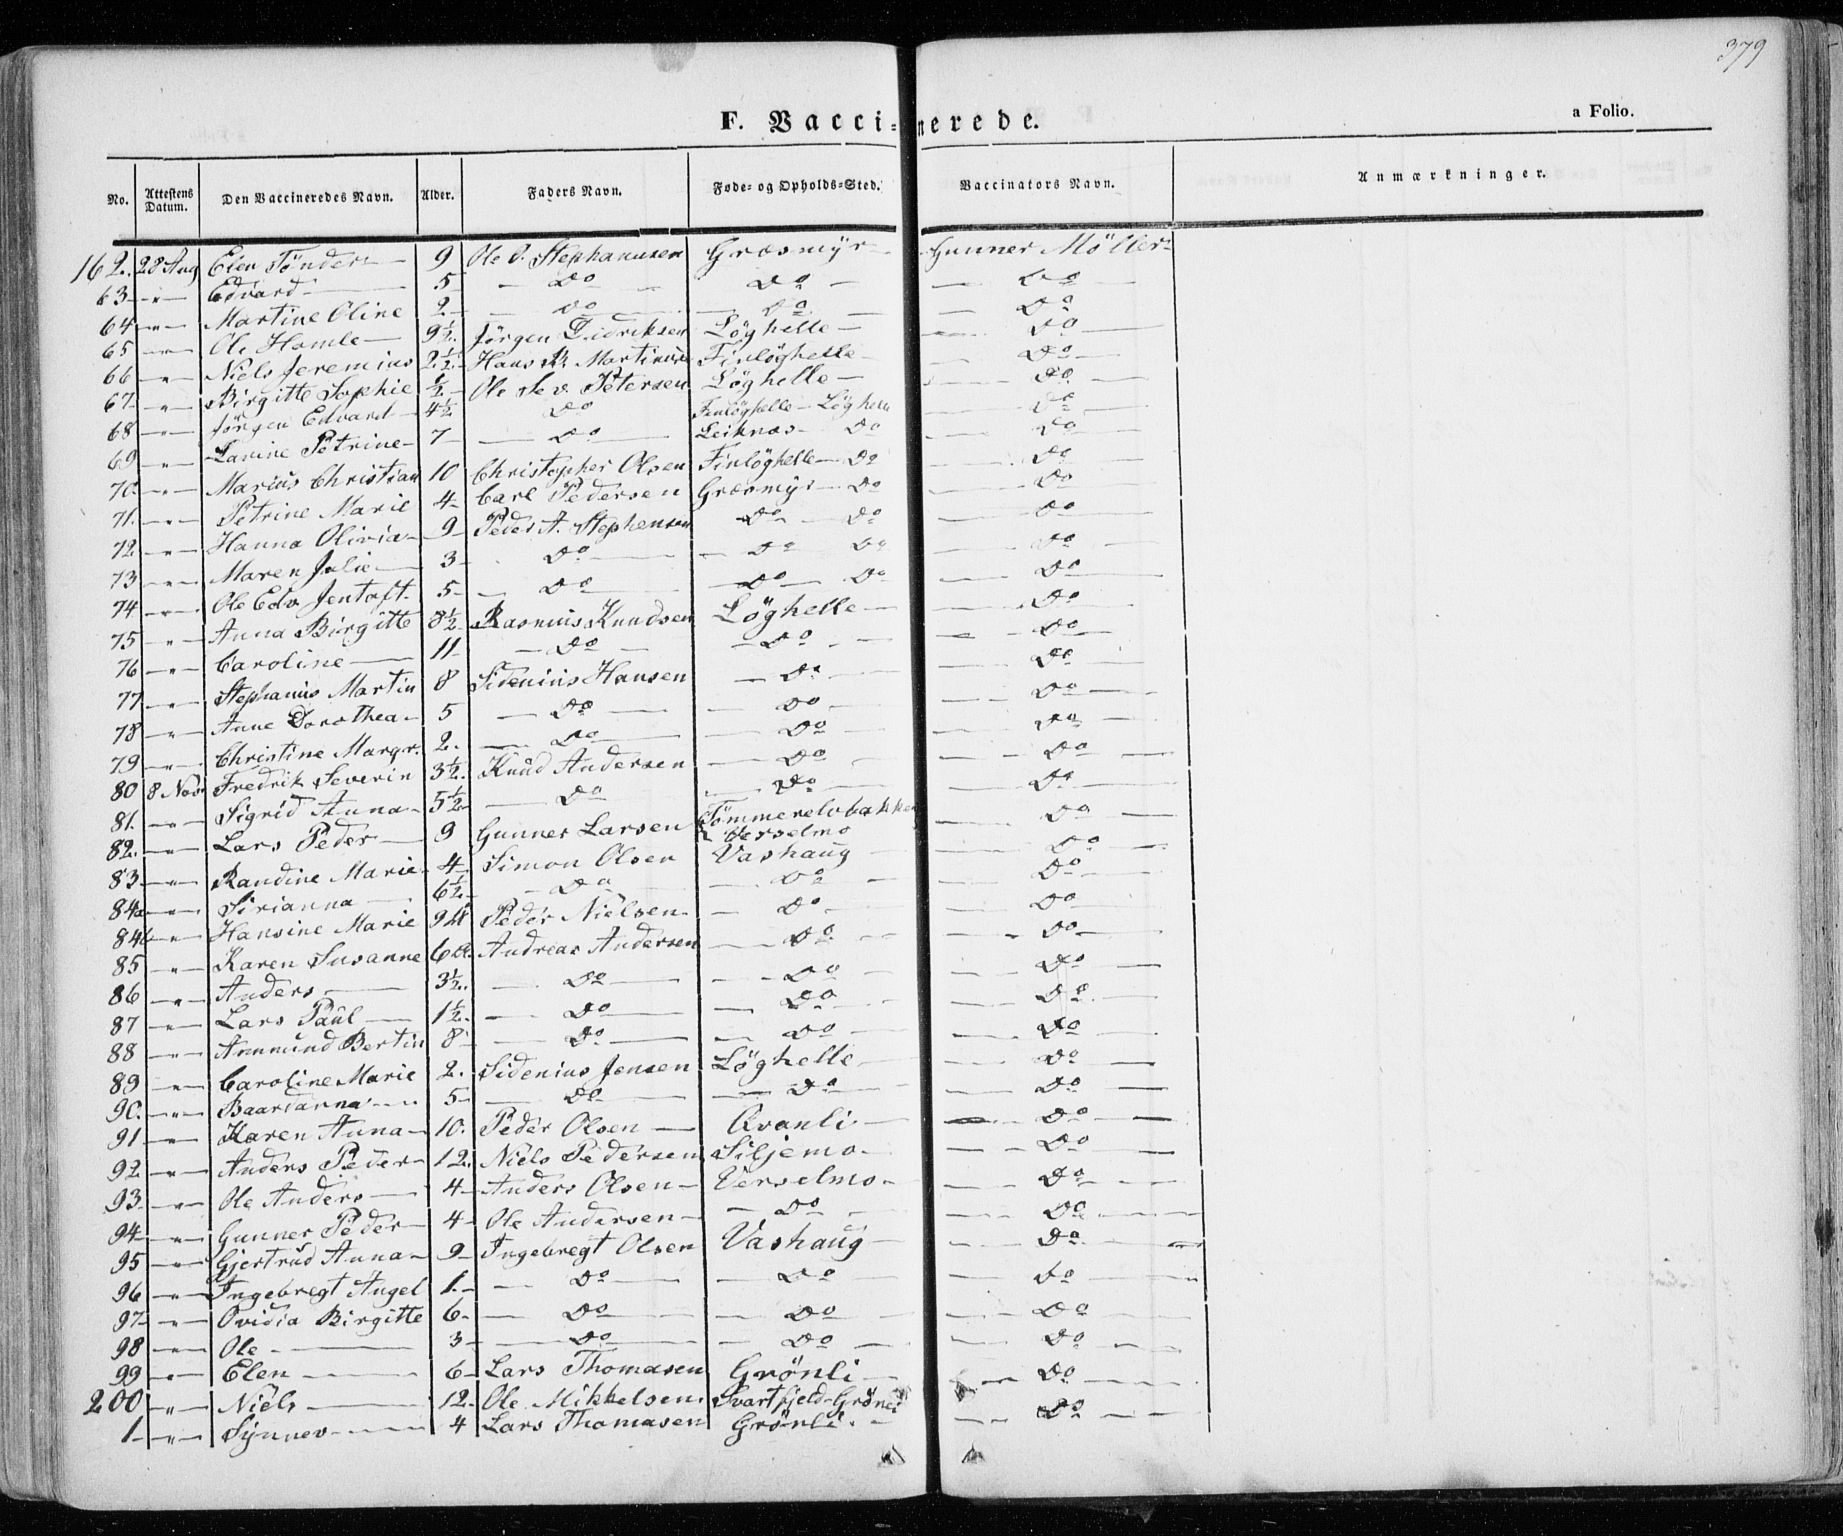 379
F. Vacci-nerede.
a Folio.
No. Attestens Datum. Den Vaccineredes Navn. Alder. Faders Navn. Føde- og Opholds-Sted. Vaccinators Navn. Anmærkninger.
162. 28 Aug Elen Tönder 9 Ole O. Stephanusen Græsmyr Gunner Möller
63 -"- Edvard 5 Do Do Do
64 -"- Martine Oline 2 Do Do Do
65 -"- Ole Hamle 9½ Jörgen Didriksen Löghelle Do
66 -"- Niels Jeremius 2½ Hans Martinus Finlöghelle Do
67 -"- Birgitte Sophie ½ Ole Petersen Löghelle Do
68 -"- Jörgen Edvard 4½ Do Finlöghelle - Löghelle Do
69 -"- Lavine Petrine 7 Do Leiknæs Do Do
70 -"- Marius Christian 10 Christopher Olsen Finlöghelle Do Do
71. -"- Petrine Marie 4 Carl Pedersen Græsmyr Do Do
72 -"- Hanna Olivia 9 Peder A. Stephensen Do Do Do
73 -"- Maren Julie 3 Do Do Do Do
74 -"- Ole Edv. Jentoft. 5 Do Do Do Do
75 -"- Anna Birgitte 8½ Rasmus Knudsen Löghelle Do
76 -"- Caroline 11 Do Do Do
77 -"- Stephanus Martin 8 Sidenius Hansen Do Do
78 -"- Anne Dorothea 5 Do Do Do
79 -"- Christine Margr. 2. Do Do Do
80 8 Nov Fredrik Severin 3½ Knud Andersen Do Do
81. -"- Sigrid Anna 5½ Do Do Do
82. -"- Lars Peder 9 Gunner Larsen Tömmerelvbakken Verselmo Do
83 -"- Randine Marie 4 Simon Olsen Vashaug Do
84a -"- Sirianna 6½ Do Do Do
84b -"- Hansine Marie Peder Nielsen Do Do
85 -"- Karen Susanne Andreas Andersen Do Do
86 -"- Anders 3½ Do Do Do
87 -"- Lars Paul 1½ Do Do Do
88 -"- Ammund Bertin 8 Do Do Do
89 -"- Caroline Marie 2. Sidenius Jensen Löghelle Do
90. -"- Baarianna 5 Do Do Do
91 -"- Karen Anna 10. Peder Olsen Qvanli Do
92 -"- Anders Peder 12. Niels Pedersen Siljemo Do
93. -"- Ole Anders 4 Anders Olsen Verselmo Do
94 -"- Gunner Peder 4 Ole Andersen Do Do
95 -"- Gjertrud Anna 9 Ingebregt Olsen Vashaug Do
96 -"- Ingebregt Angel 1. Do Do Do
97 -"- Ovidia Birgitte 6 Do Do Do
98 -"- Ole 3 Do Do Do
99 -"- Elen 6 Lars Thomasen Grönli Do
200 -"- Niels 12. Ole Mikkelsen Svartfjeld-Grönli Do
1 -"- Synnev 4 Lars Thomasen Grönli Do